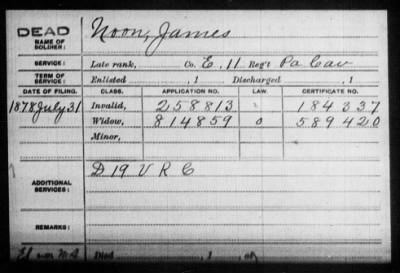 DEAD Noon, James
NAME OF SOLDIER:
SERVICE: Late rank, Co. E, 11 Reg't Pa Cav
TERM OF SERVICE: Enlisted , 1 Discharged , 1
DATE OF FILING. CLASS. APPLICATION NO. LAW. CERTIFICATE NO.
1878 July 31 Invalid, 258813 184337
Widow, 814859 0 589420
Minor,
D 19 V R C
ADDITIONAL SERVICES:
REMARKS:
Died , 1 , at